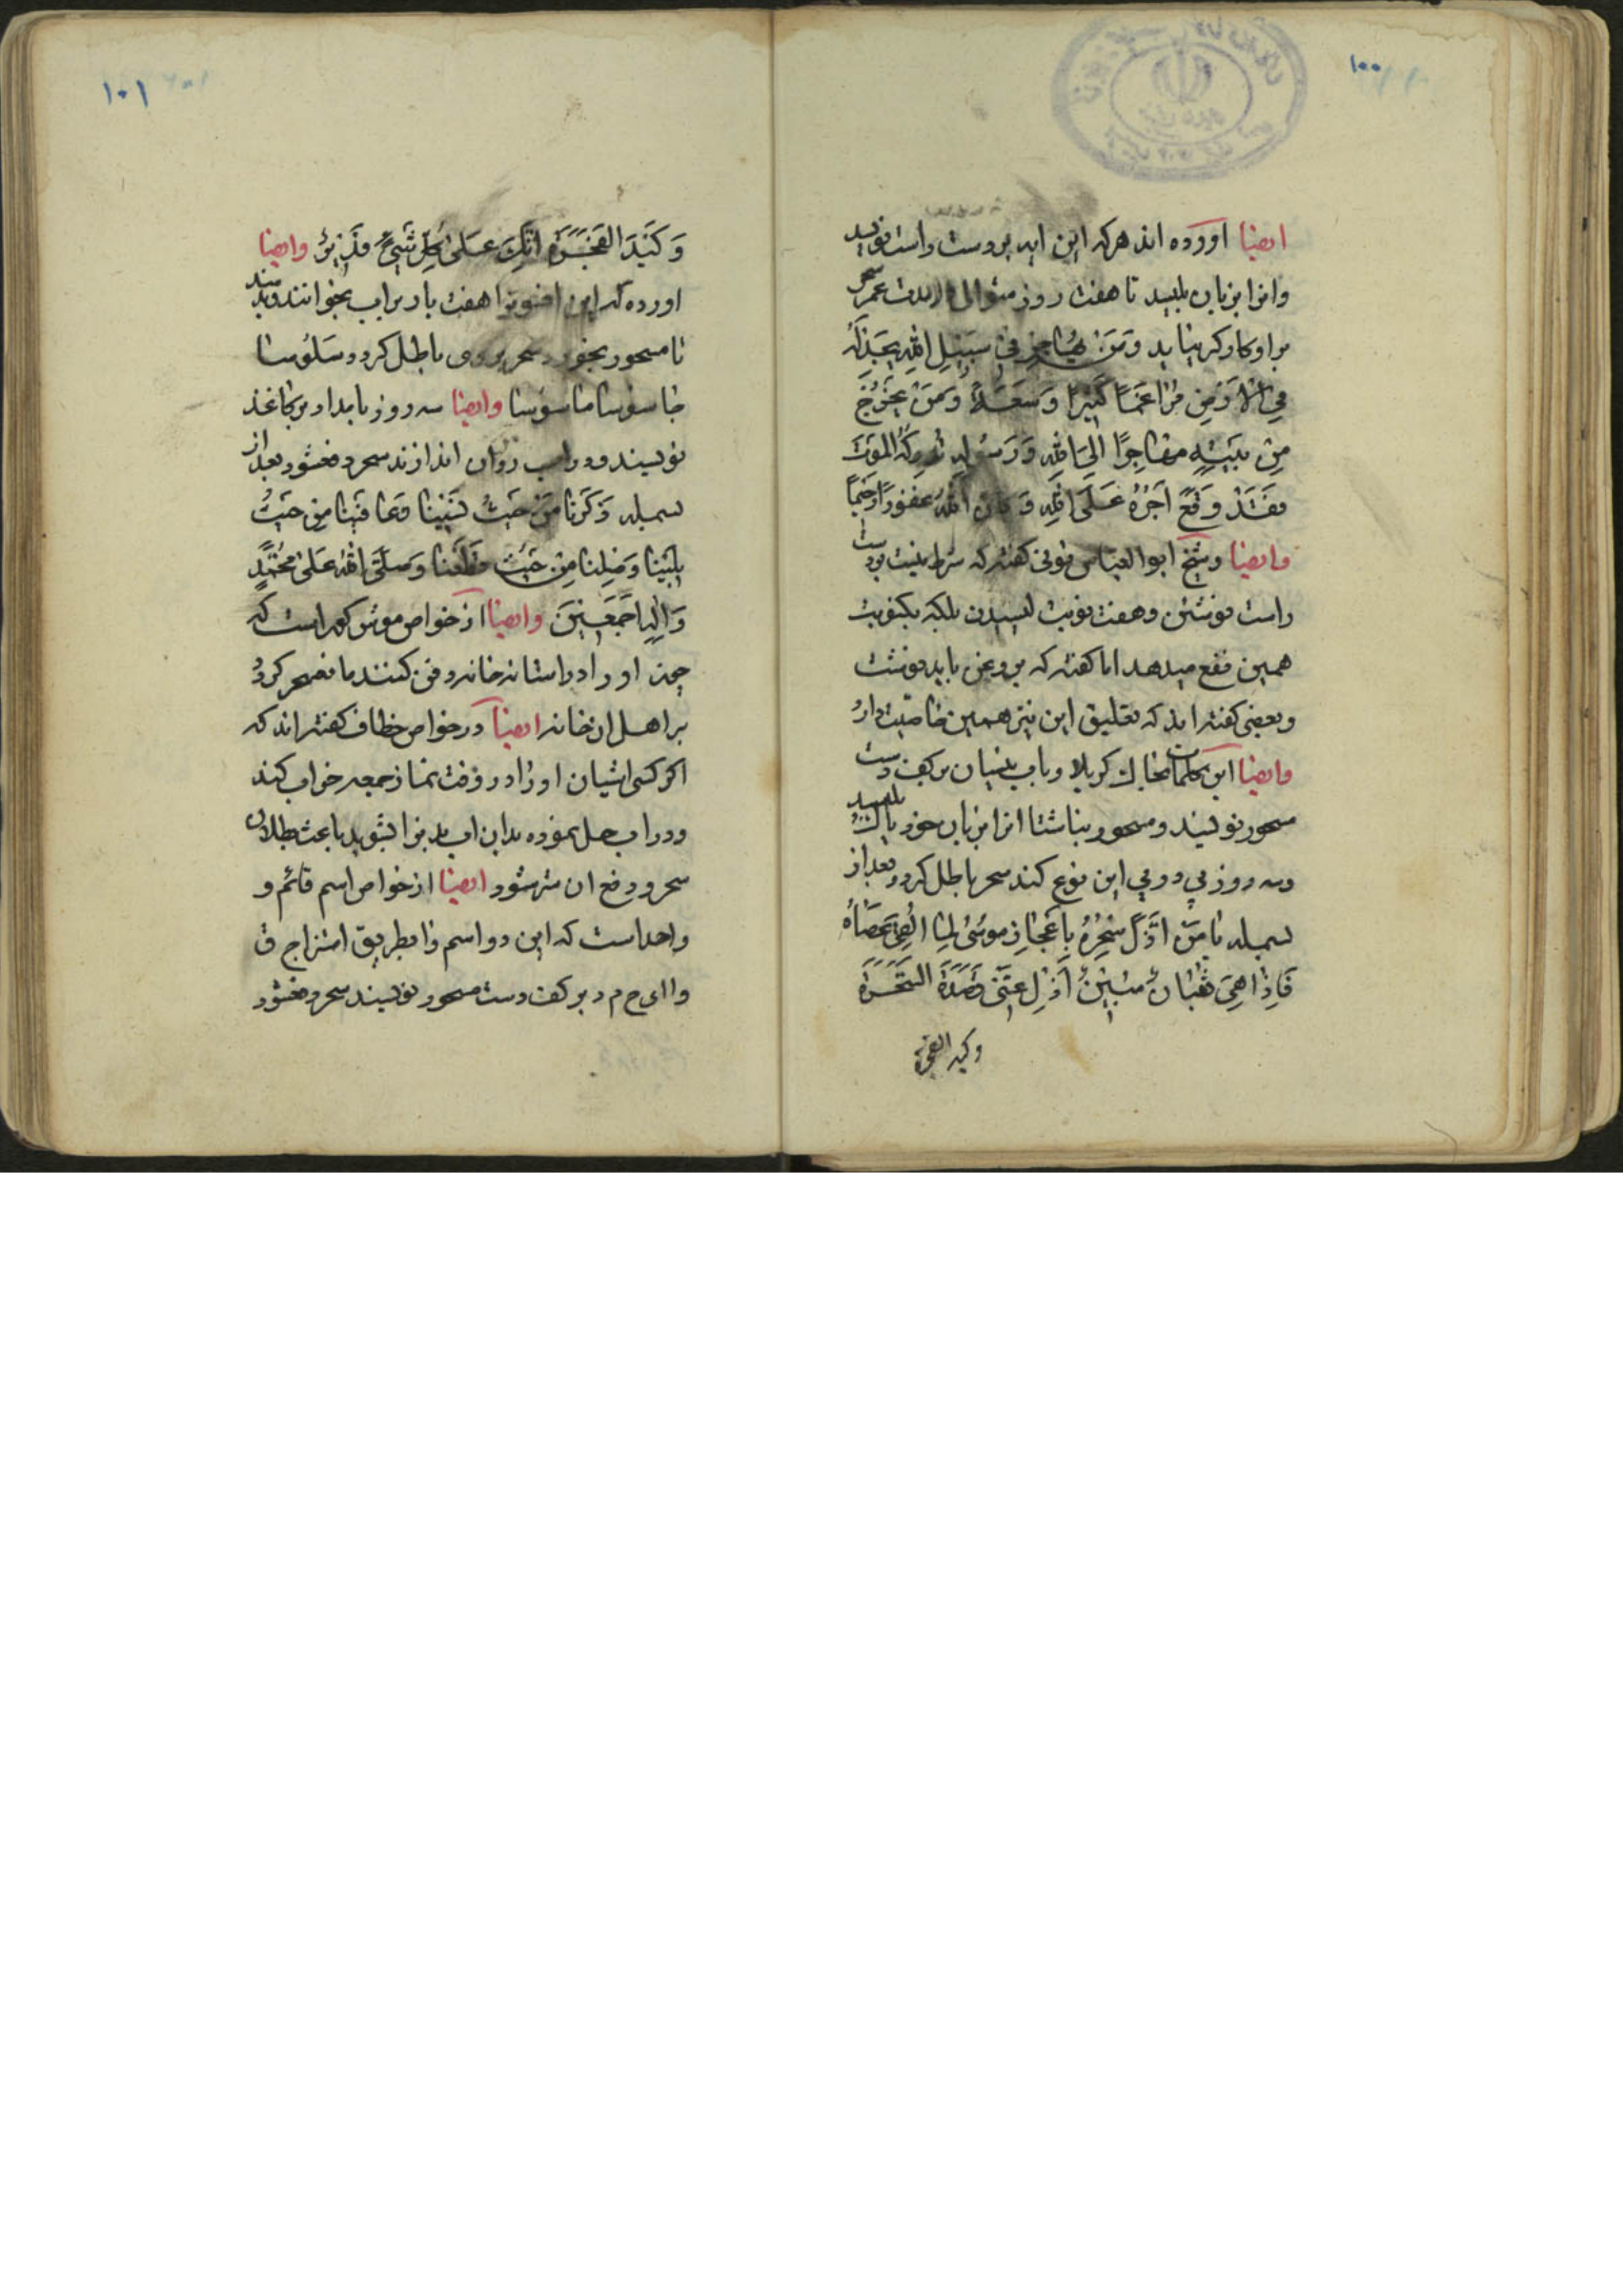 ۱۰۰
ایضا اورده اند هر که این ایه بر دست راست نویسد
و انرا بزبان بلیسد تا هفت روز متوالی در مدت عمر سحر
براو کارکر نیاید وَمَنْ یُهٰاجِرْ فی سَبیٖلِ اللّٰهِ یَجِدْ
فِی الْاَرْضِ مُرٰاغَمًا کَثیٖرًا وَسَعَةً وَمَنْ یَخْرُجْ
مِنْ بَیْتِهِ مُهٰاجِرًا اِلَی اللّٰهِ وَرَسُولِهِ یُدْرِکْهُ الْمَوْتُ
فَقَدْ وَقَعَ اَجْرُهُ عَلَی اللّٰهِ وَکٰانَ اللّٰهُ غَفُورًا رَحیٖمًا
وایضا و شیخ ابو العباس بونی کفته که شرط نیست بر دست
راست نوشتن و هفت نوبت لیسیدن بلکه یکنوبت
همین نفع میدهد اما کفته که بروغن باید نوشت
و بعضی کفته اند که تعلیق این نیز همین خاصیت دارد
وایضا این کلمات بخاک کربلا و باب نیسان بر کف دست
مسحور نویسند و مسحور بناشتا انرا بزبان خود پاک بلیسد
و سه روز پی در پی این نوع کند سحر باطل کردد بعد از
بسمله یا مَنْ اَذَلَّ سَحَرَهُ بِاِعْجٰازِ مُوسٰی لَمّٰا اَلْقٰی عَصٰاهُ
فَاِذٰا هِیَ ثُعْبٰانٌ مُبیٖنٌ اَزِلْ عَنّیٖ السَّحَرَةِ
وکید الفجرة
۱۰۱
وَکَیْدَ الْفَجَرَةِ اِنَّکَ عَلٰی کُلِّ شَیْءٍ قَدیٖرٌ وایضا
اورده که این افسونرا هفت بار بر اب بخوانند و بدهند
تا مسحور بخورد سحر بر وی باطل کردد سَلُوسا
خاسوسا ماسوسا وایضا سه روز بامداد بر کاغذ
نویسند و در اب روان اندازند سحر دفع شود بعد از
بسمله وَکَرَنا مَنْ حَیْثُ نَسیٖنا وَعٰافَیْنا مِنْ حَیْثُ
بُلیٖنا وَصِلْنا مِنْ حَیْثُ قَطَعْنا وَصَلَّی اللّٰهُ عَلٰی مُحَمَّدٍ
وَاٰلِهِ اَجْمَعیٖنَ وایضا از خواص موش کور است که
چون او را در استانه خانه دفن کنند مانع سحر کردد
بر اهل ان خانه ایضا در خواص خطاف کفته اند که
اکر کسی اشیان او را در وقت نماز جمعه خراب کند
و در اب حل نموده بدان اب بدنرا بشوید باعث بطلان
سحر و دفع ان شر شود ایضا از خواص اسم قائم و
واحد است که این دو اسم را بطریق امتزاج ق
و ا ا ی ح م د بر کف دست مسحور نویسند سحر دفع شود